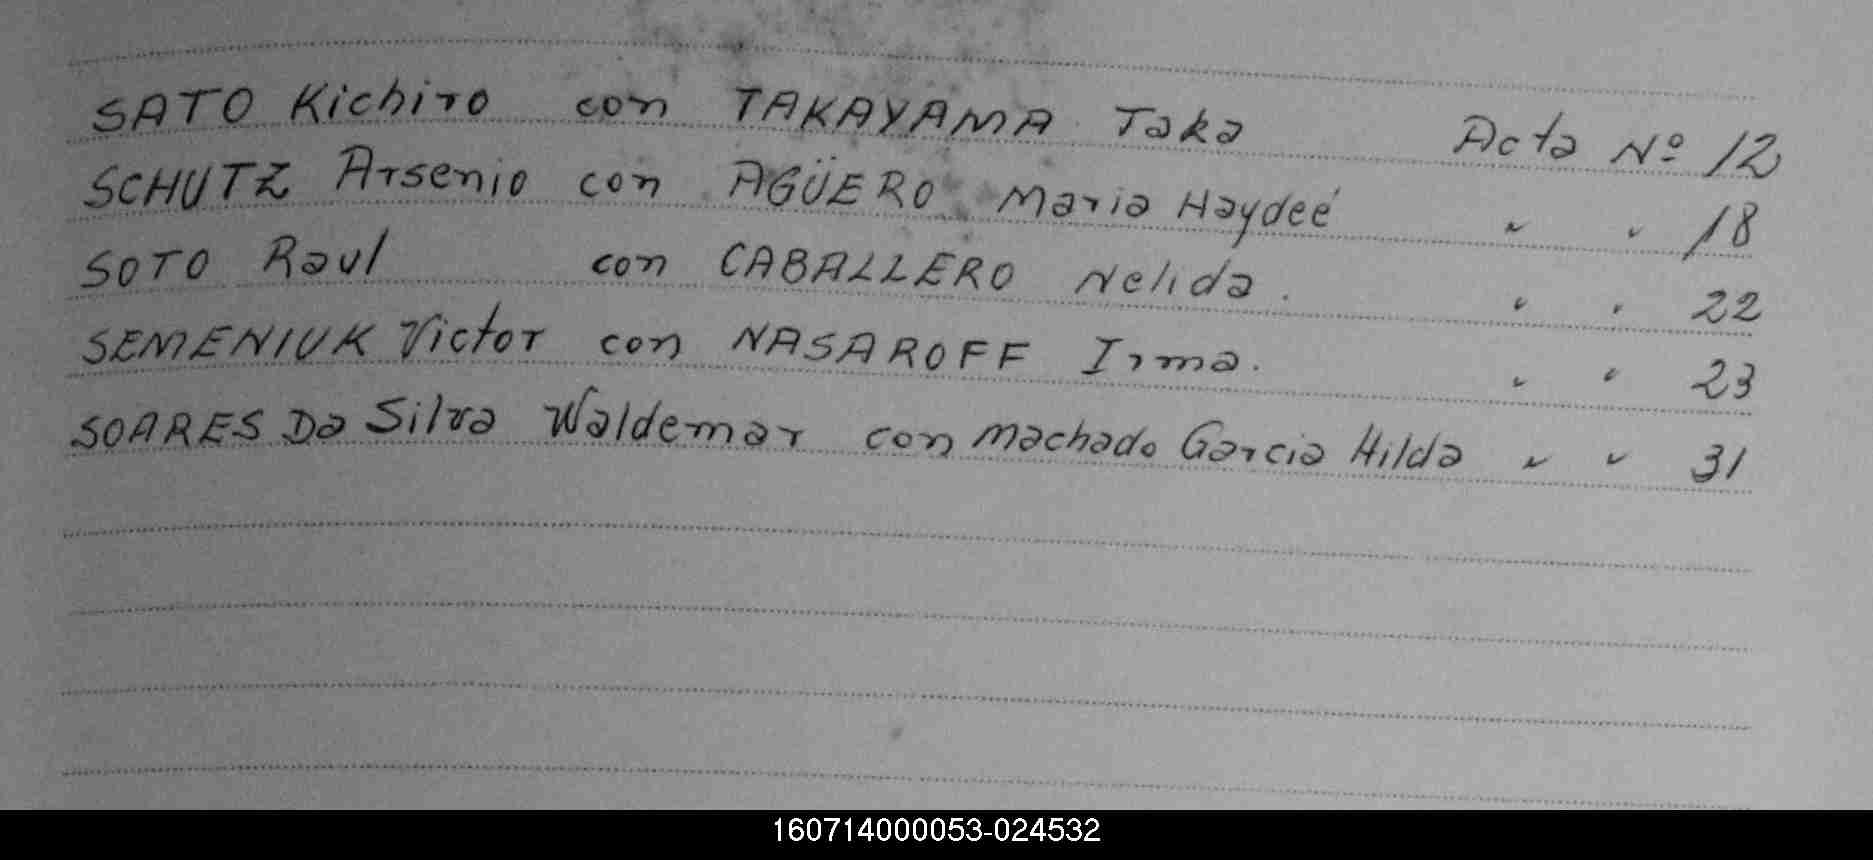 SATO Kichiro con TAKAYAMA Taka Acta Nº 12
SCHUTZ Arsenio con AGÜERO Maria Haydeé " " 18
SOTO Raul con CABALLERO Nelida. " " 22
SEMENIUK Victor con NASAROFF Irma. " " 23
SOARES Da Silva Waldemar con Machado Garcia Hilda " " 31
160714000053-024532